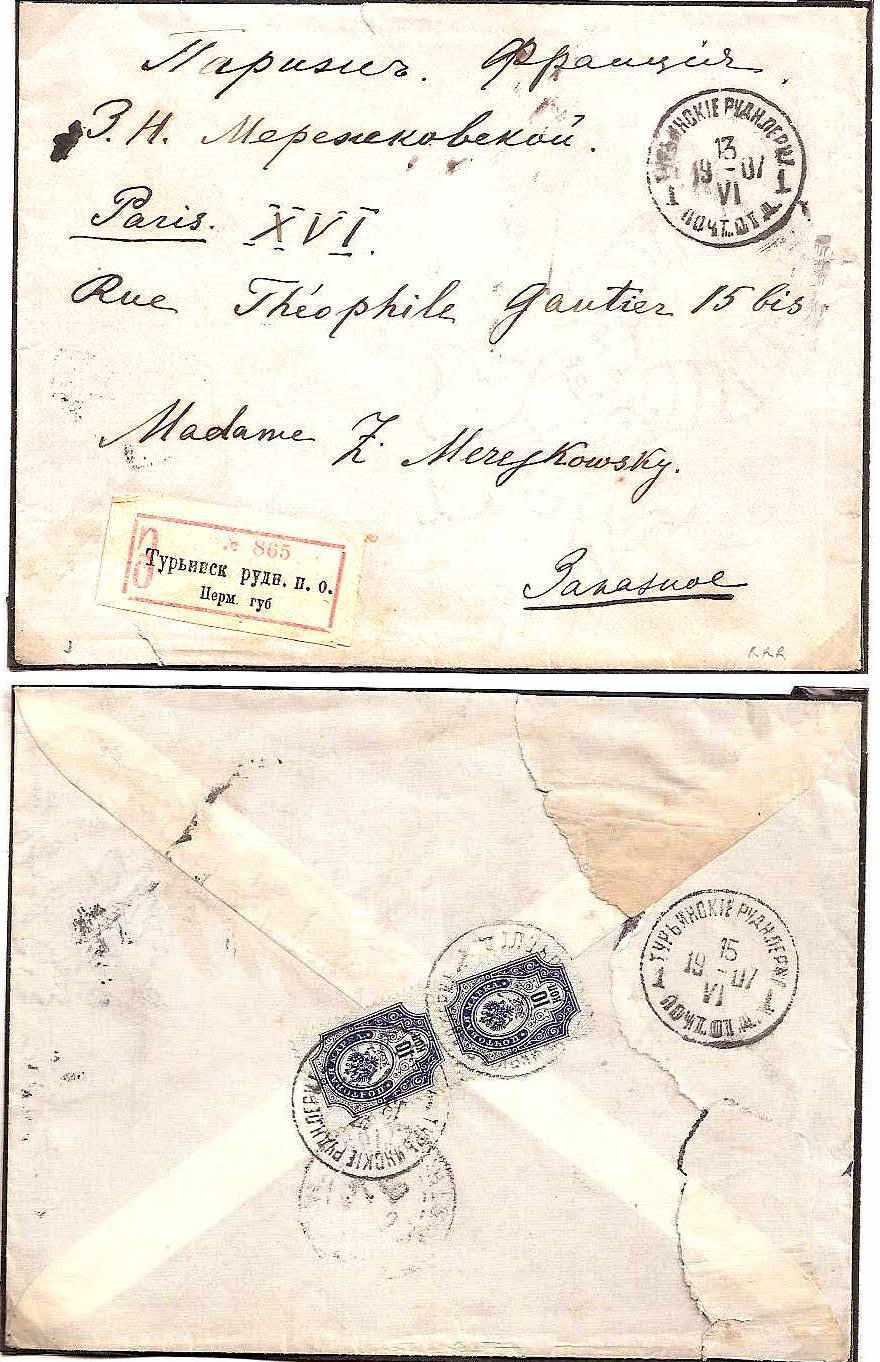 Парижъ. Франція.
З. Н. Мережковской.
Paris. XVI.
Rue Théophile Gautier 15 bis
Madame Z. Merejkowsky.
Заказное
ТУРЬИНСКІЕ РУДН. ПЕРМ.
13
19 - 07
VI
1 ПОЧТ. ОТД. 1
№ 865
Турьинск рудн. п. о.
Перм. губ
RRR
ТУРЬИНСКІЕ РУДН. ПЕРМ.
15
19 - 07
VI
10 КОП
10 КОП
ТУРЬИНСКІЕ РУДН. ПЕРМ.